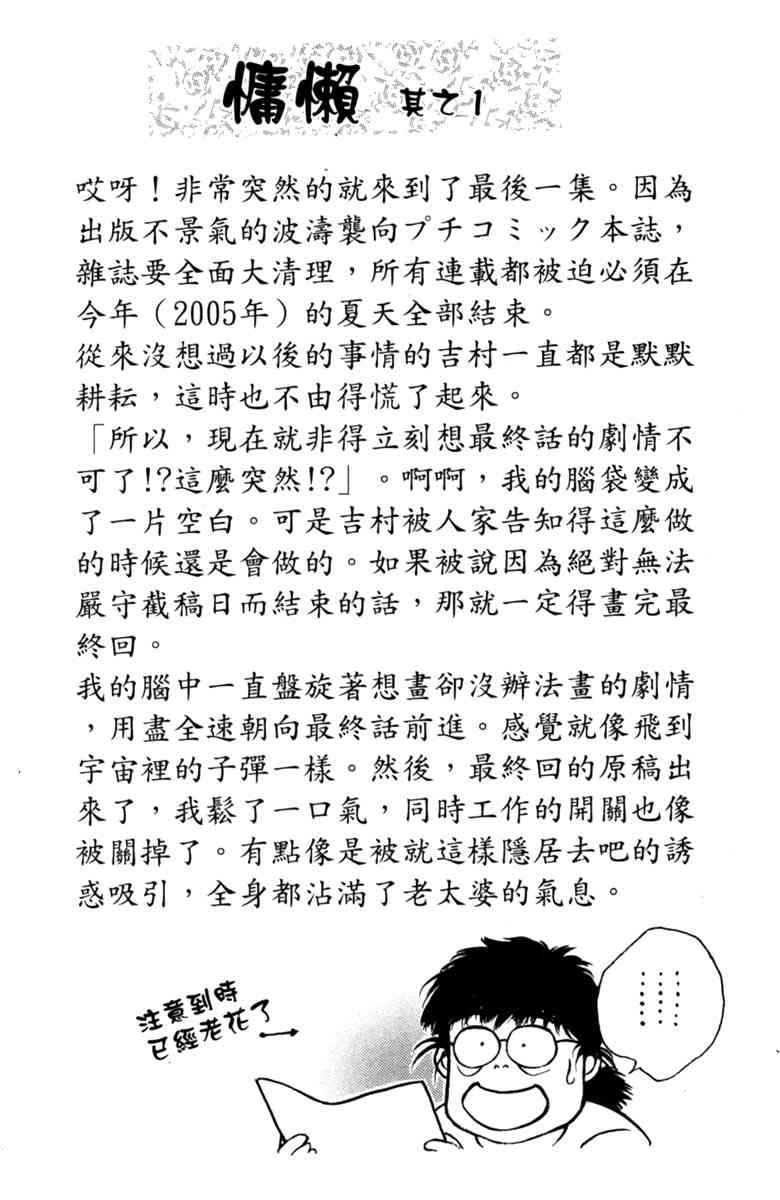 慵懶 其之1
哎呀！非常突然的就來到了最後一集。因為
出版不景氣的波濤襲向プチコミック本誌，
雜誌要全面大清理，所有連載都被迫必須在
今年（2005年）的夏天全部結束。
從來沒想過以後的事情的吉村一直都是默默
耕耘，這時也不由得慌了起來。
「所以，現在就非得立刻想最終話的劇情不
可了!?這麼突然!?」。啊啊，我的腦袋變成
了一片空白。可是吉村被人家告知得這麼做
的時候還是會做的。如果被說因為絕對無法
嚴守截稿日而結束的話，那就一定得畫完最
終回。
我的腦中一直盤旋著想畫卻沒辦法畫的劇情
，用盡全速朝向最終話前進。感覺就像飛到
宇宙裡的子彈一樣。然後，最終回的原稿出
來了，我鬆了一口氣，同時工作的開關也像
被關掉了。有點像是被就這樣隱居去吧的誘
惑吸引，全身都沾滿了老太婆的氣息。
注意到時
已經老花了
………
………
………